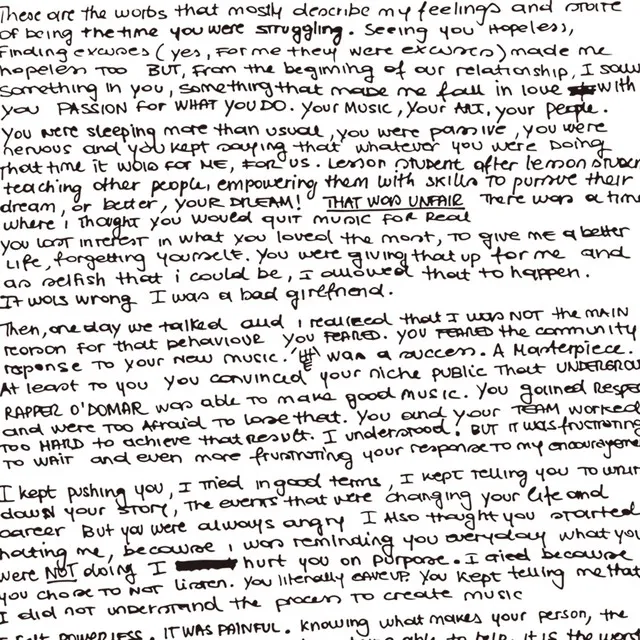 These are the words that mostly describe my feelings and state
of being the time you were struggling. Seeing you Hopeless,
Finding excuses (yes, for me they were excuses) made me
hopeless too BUT, from the beginning of our relationship, I saw
something in you, something that made me fall in love with
you PASSION for WHAT YOU DO. YOUR MUSIC, YOUR ART, your people.
You were sleeping more than usual, you were passive, you were
nervous and you kept saying that whatever you were doing
that time it was for ME, FOR US. Lesson student after lesson student
teaching other people, empowering them with skills to pursue their
dream, or better, YOUR DREAM! THAT WAS UNFAIR There was a time
where i thought you would quit music for real
you lost interest in what you loved the most, to give me a better
life, forgetting yourself. You were giving that up for me and
as selfish that i could be, I allowed that to happen.
It was wrong I was a bad girlfriend.
Then, one day we talked and i realised that I was NOT the MAIN
reason for that behaviour you FEARED. you FEARED the community
response to your new music. was a success. A Masterpiece.
At least to you you convinced your niche public that UNDERGROU
RAPPER O'DOMAR was able to make good music. You gained RESPE
and were too afraid to lose that. You and your TEAM worked
too HARD to achieve that result. I understood. BUT it was frustrating
to WAIT and even more frustrating your response to my encourageme
I kept pushing you, I tried in good terms, I kept telling you to
down your story, the events that were changing your life and
career But you were always angry I also thought you started
hating me, because i was reminding you everyday what you
were NOT doing I hurt you on purpose. I cried because
you chose to NOT listen. You literally GAVE UP. You kept telling me that
I did not understand the process to create music
I felt POWERLESS. IT WAS PAINFUL. Knowing what makes your person, the
able to help, it is the